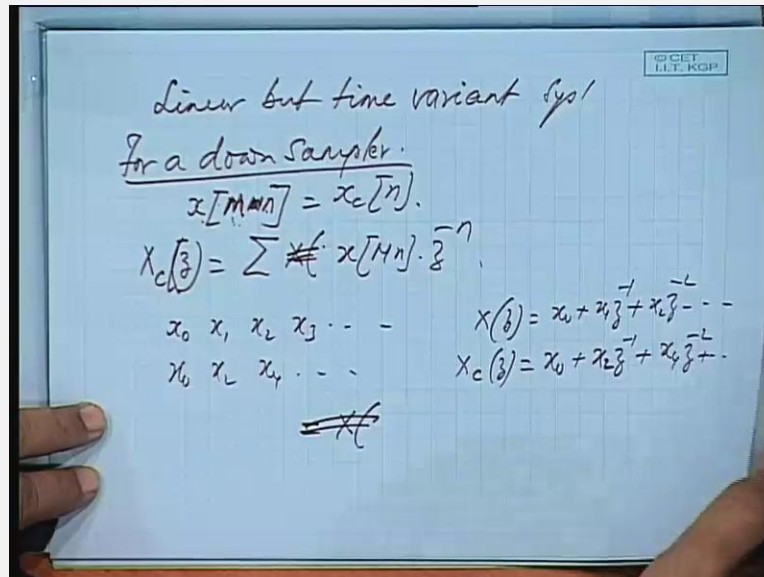 © CET
I.I.T. KGP
Linear but time variant Syst
For a down Sampler.
x[Mn] = x_c[n].
X_c(z) = Σ x[Mn]. z^-n.
x_0 x_1 x_2 x_3 .. -
x_0 x_2 x_4 ...
X(z) = x_0 + x_1 z^-1 + x_2 z^-2 - - -
X_c(z) = x_0 + x_2 z^-1 + x_4 z^-2 + ..